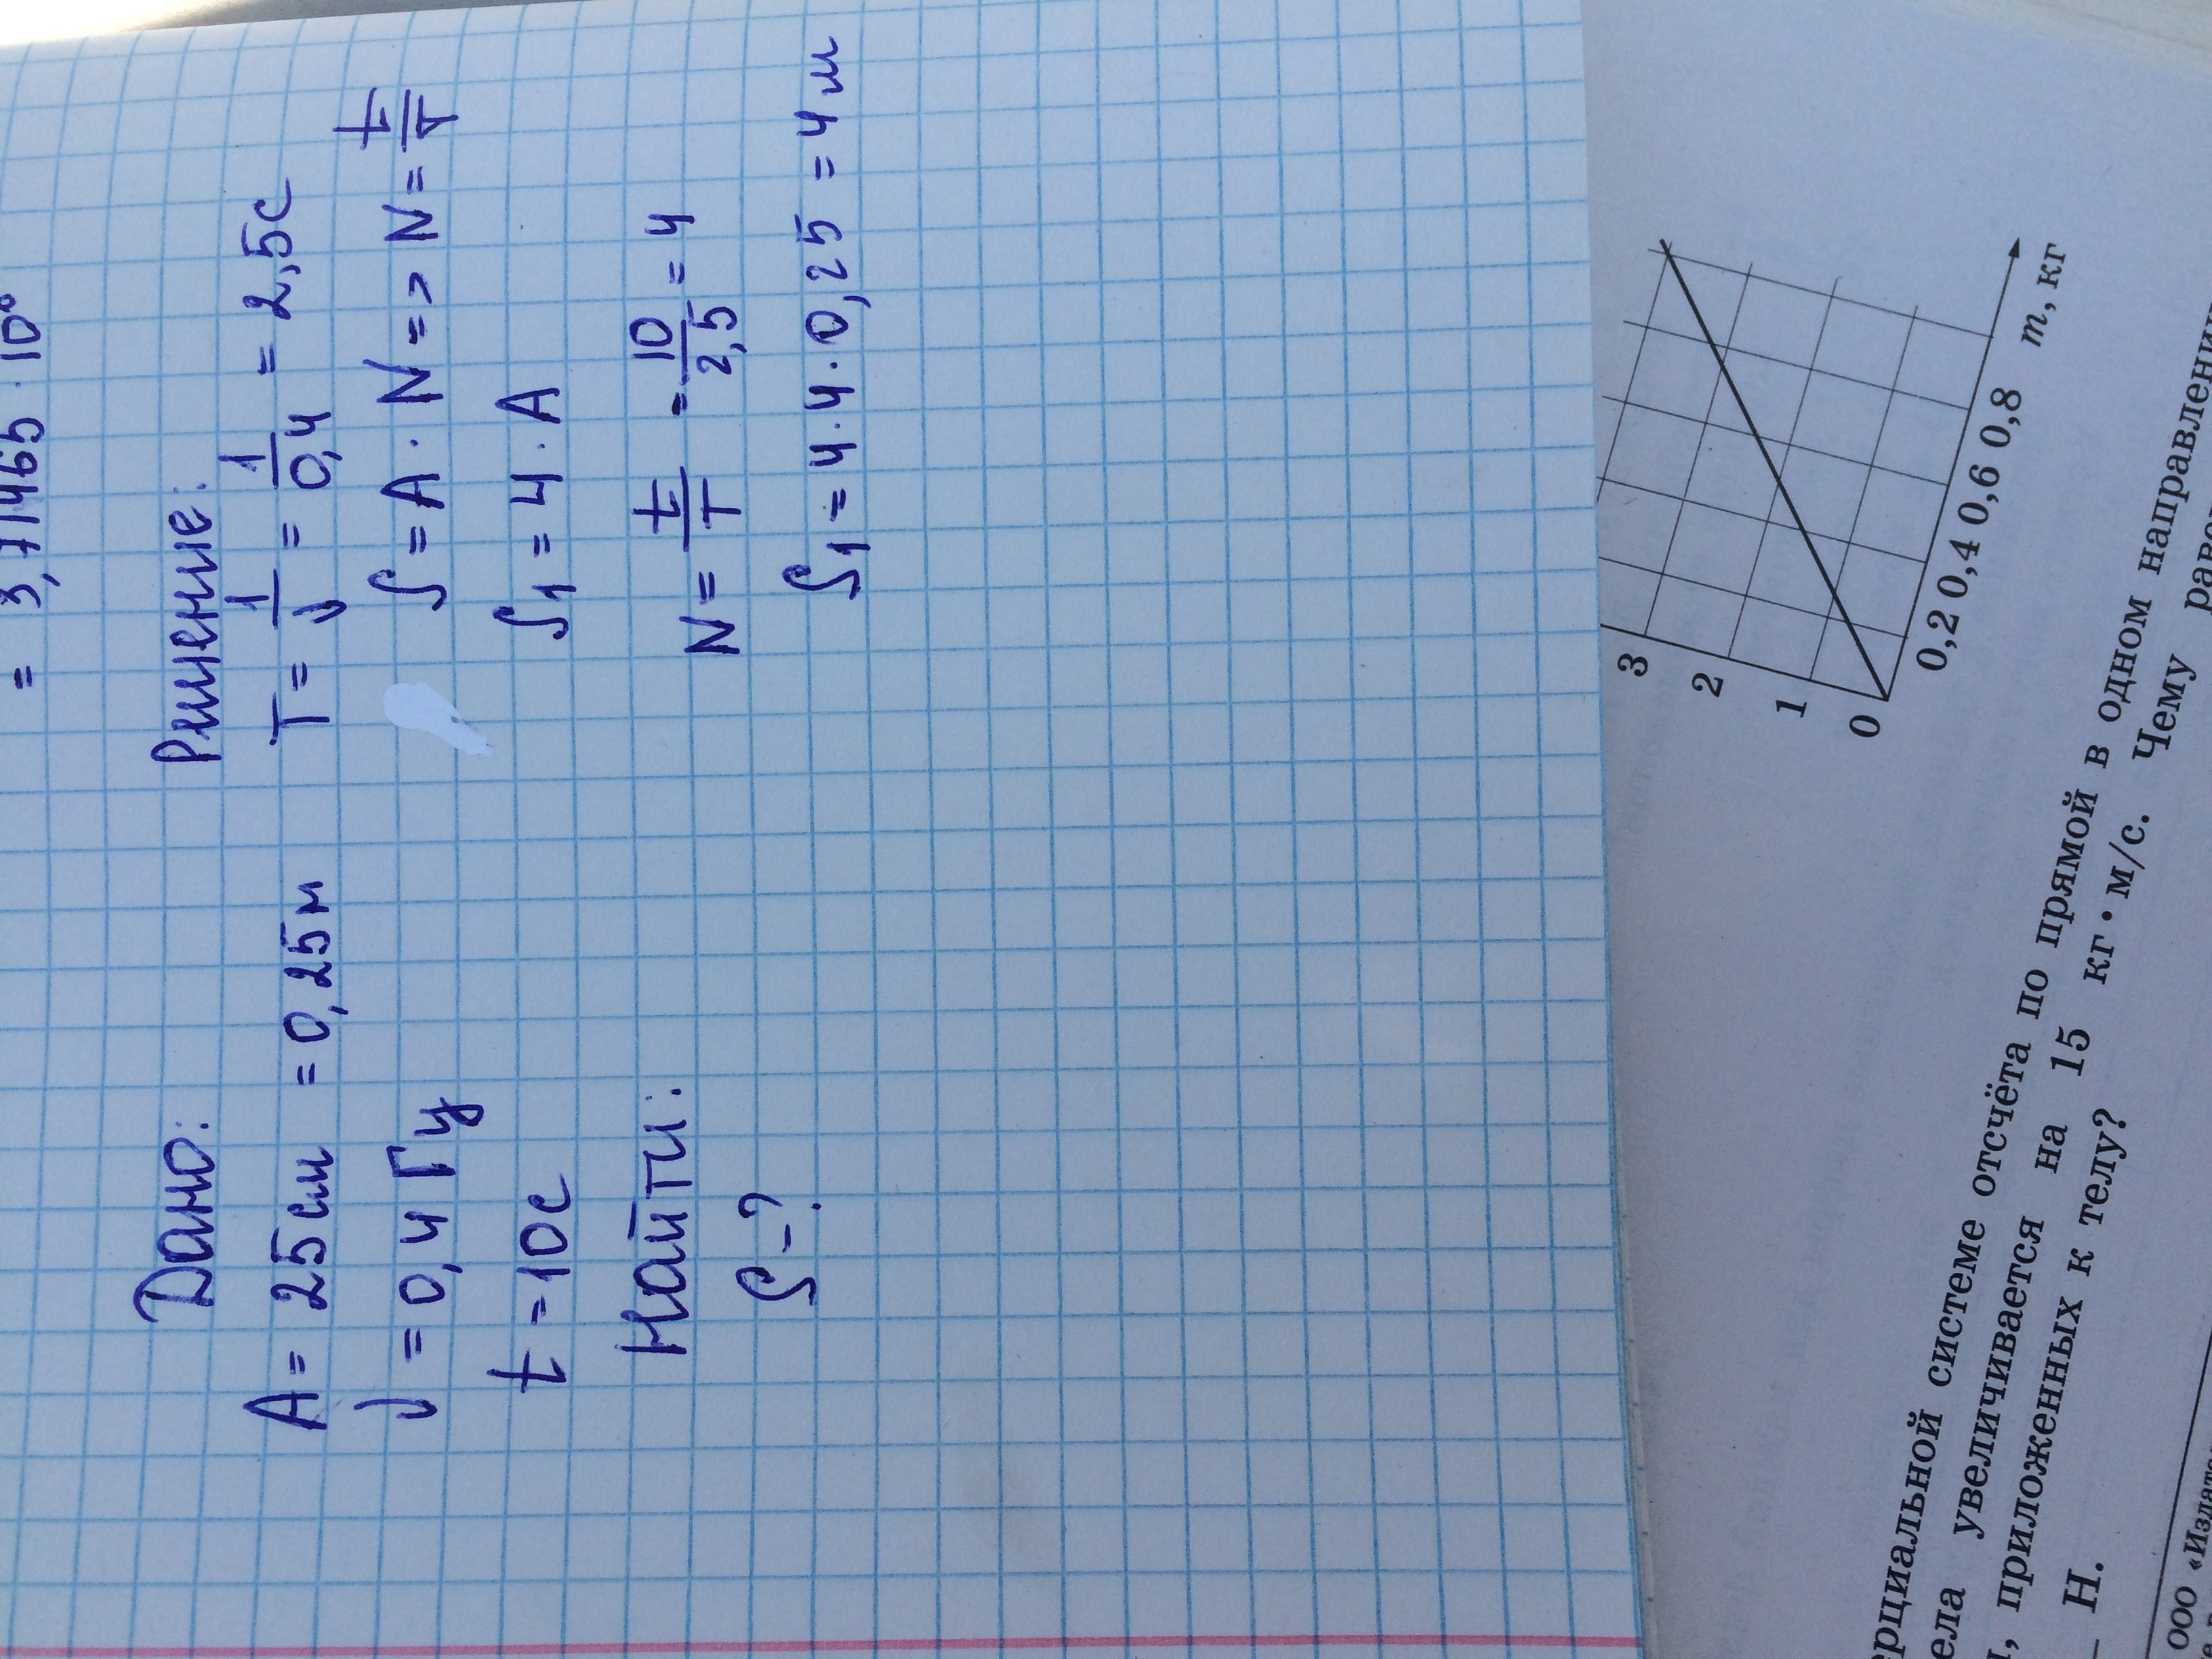 = 3,71465 · 10⁸
Дано:
A = 25 см = 0,25 м
ν = 0,4 Гц
t = 10 с
Найти:
S - ?
Решение:
T = 1/ν = 1/0,4 = 2,5 с
S = A · N => N = t/T
S₁ = 4 · A
N = t/T = 10/2,5 = 4
S₁ = 4 · 4 · 0,25 = 4 м
3
2
1
0
0,2 0,4 0,6 0,8 m, кг
системе отсчёта по прямой в одном направлении
увеличивается на 15 кг·м/с. Чему
приложенных к телу?
Н.
ООО